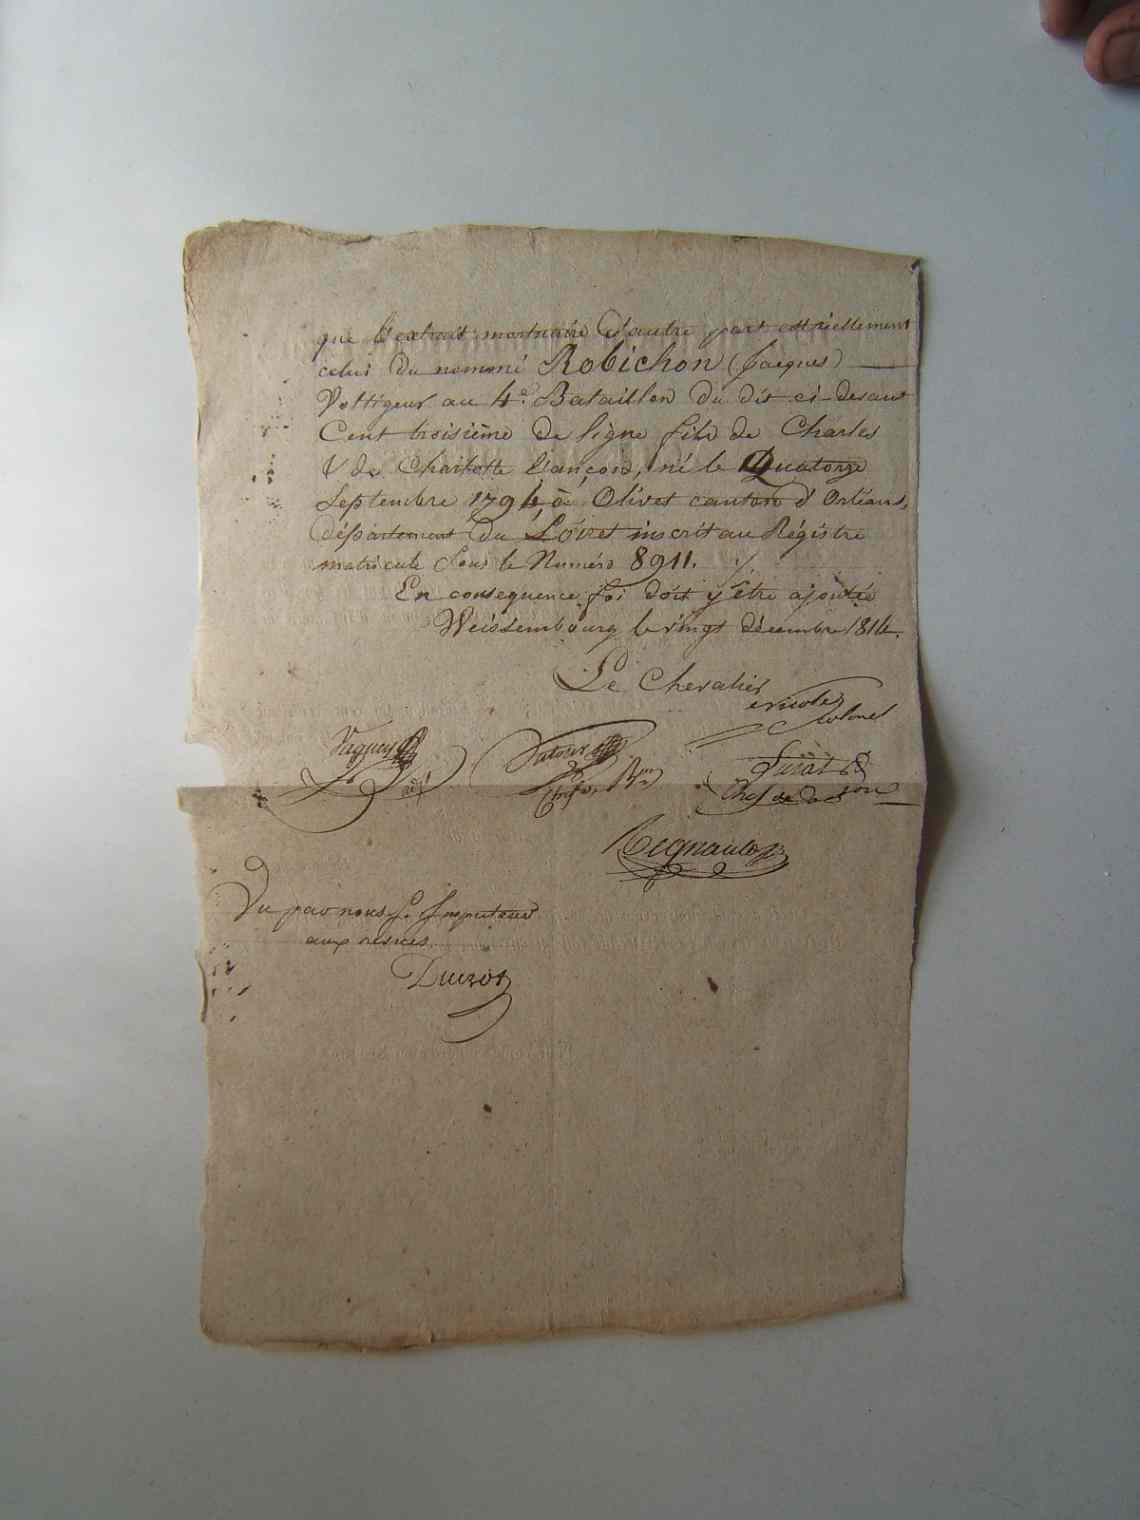 que l'extrait mortuaire d'autre part est réellement
celui du nommé Robichon (Jacques)
Voltigeur au 4e. Bataillon du dit ci-devant
Cent troisième de ligne fils de Charles
& de Charlotte liançois, né le Quatorze
Septembre 1794, à Olivet canton d'Orléans,
département du Loiret inscrit au Régistre
matricule sous le Numéro 8911.
En consequence foi doit y être ajoutée
Weissembourg le vingt décembre 1814.
Le Chevalier
Colonel
Vagney
Latour
Chef de
Regnault
Vu par nous S. Inspecteur
aux revues
Ducrot